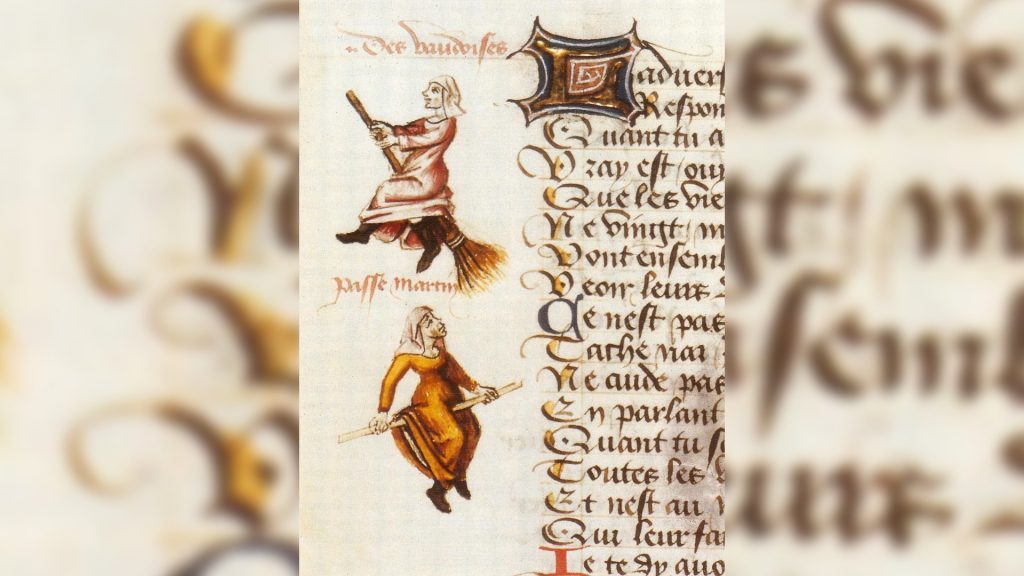 Des vaudoises
passe martin
Laduers
Respon
Quant tu a
Vray est / ouy
Que les vie
Ne vingt
Vont ensembl
Veoir leurs
Ce nest pas
Ne cuide pas
En parlant
Quant tu
Toutes les
Et nest au
Qui leur fa
Je te dy auo